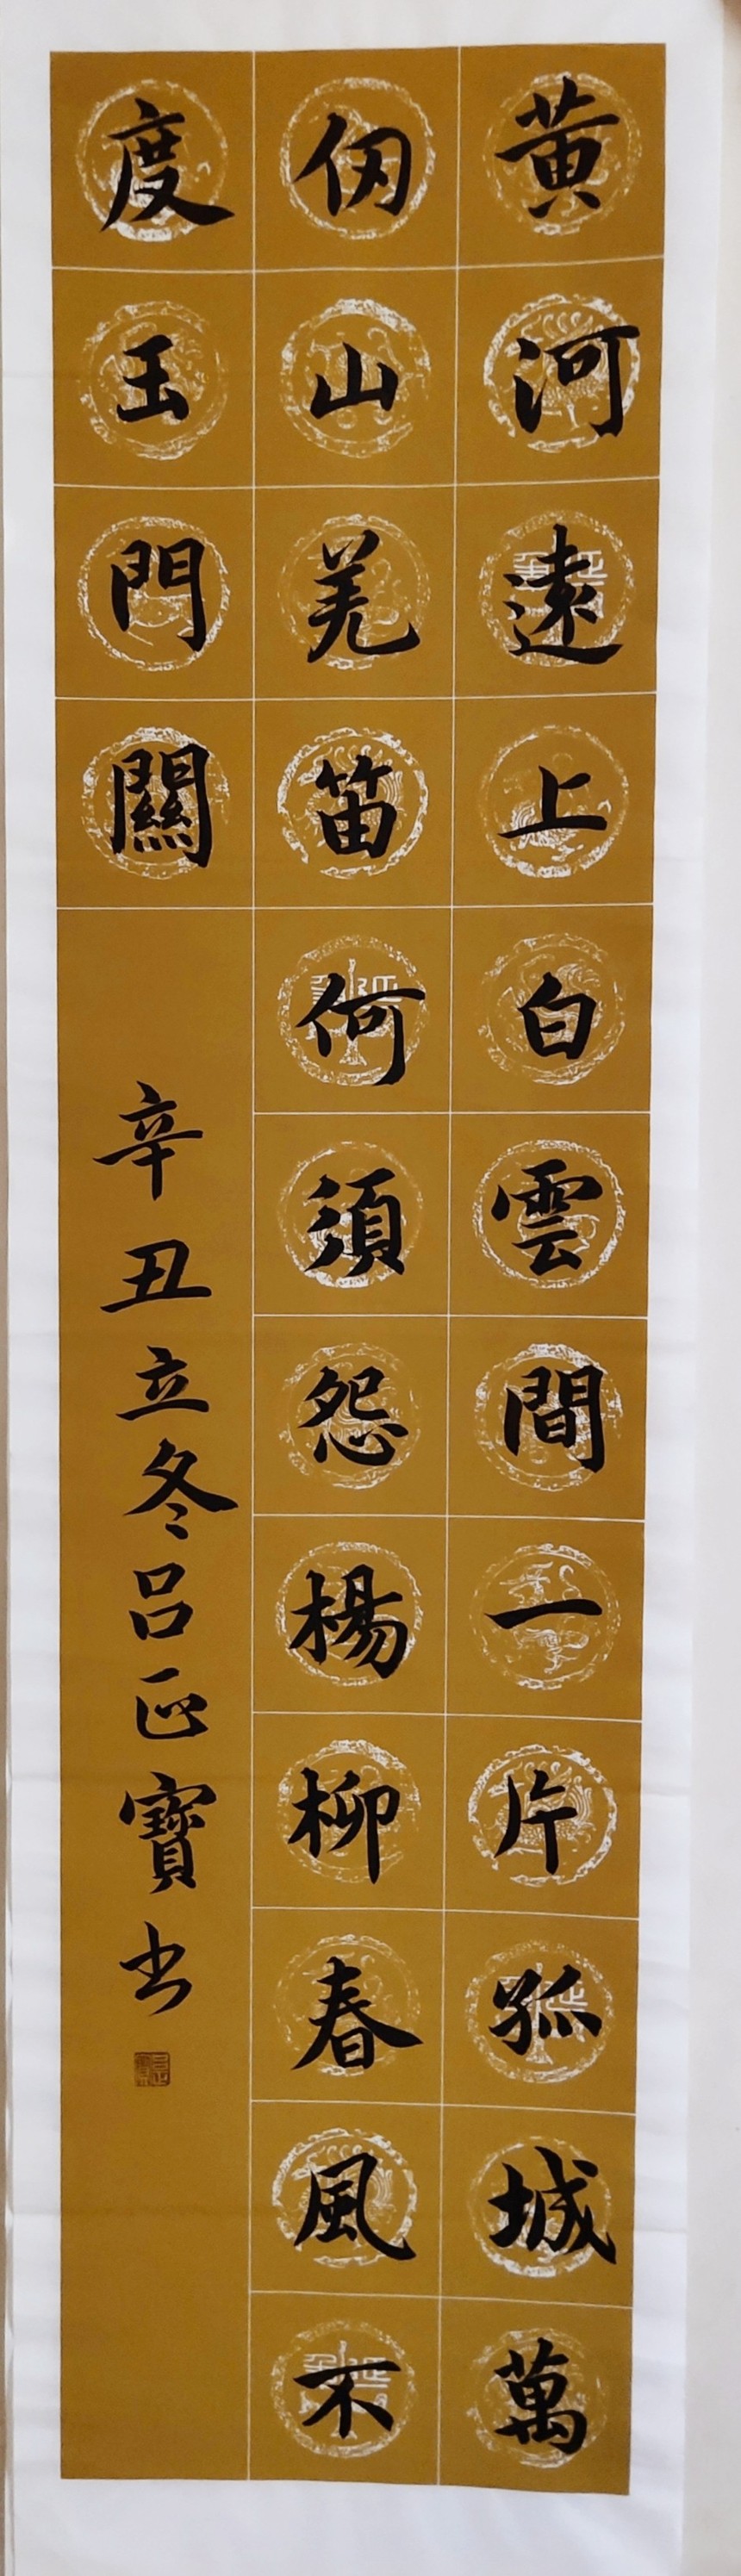 黄河遠上白雲間一片孤城萬
仞山羌笛何須怨楊柳春風不
度玉門關
辛丑立冬吕正寶书